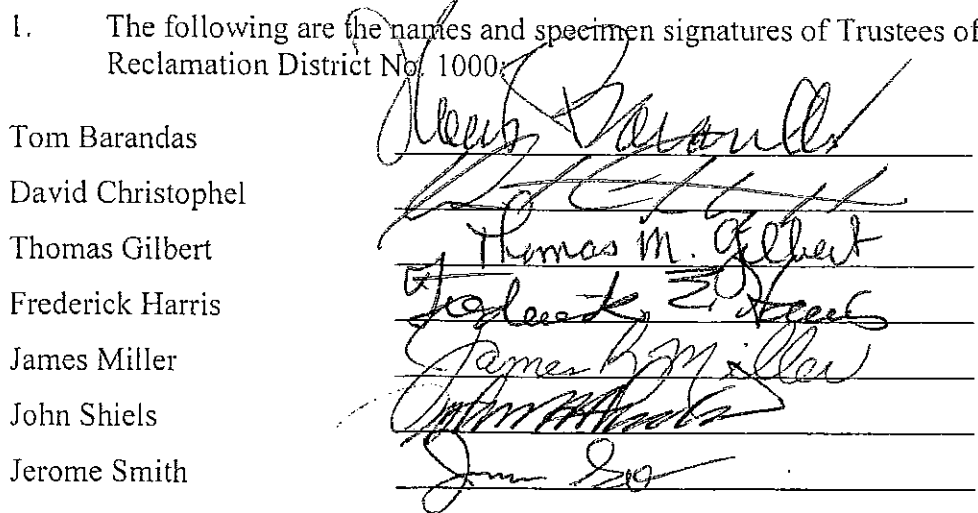 1. The following are the names and specimen signatures of Trustees of
Reclamation District No. 1000:
Tom Barandas
David Christophel
Thomas Gilbert Thomas M. Gilbert
Frederick Harris Frederick E. Harris
James Miller James R. Miller
John Shiels
Jerome Smith